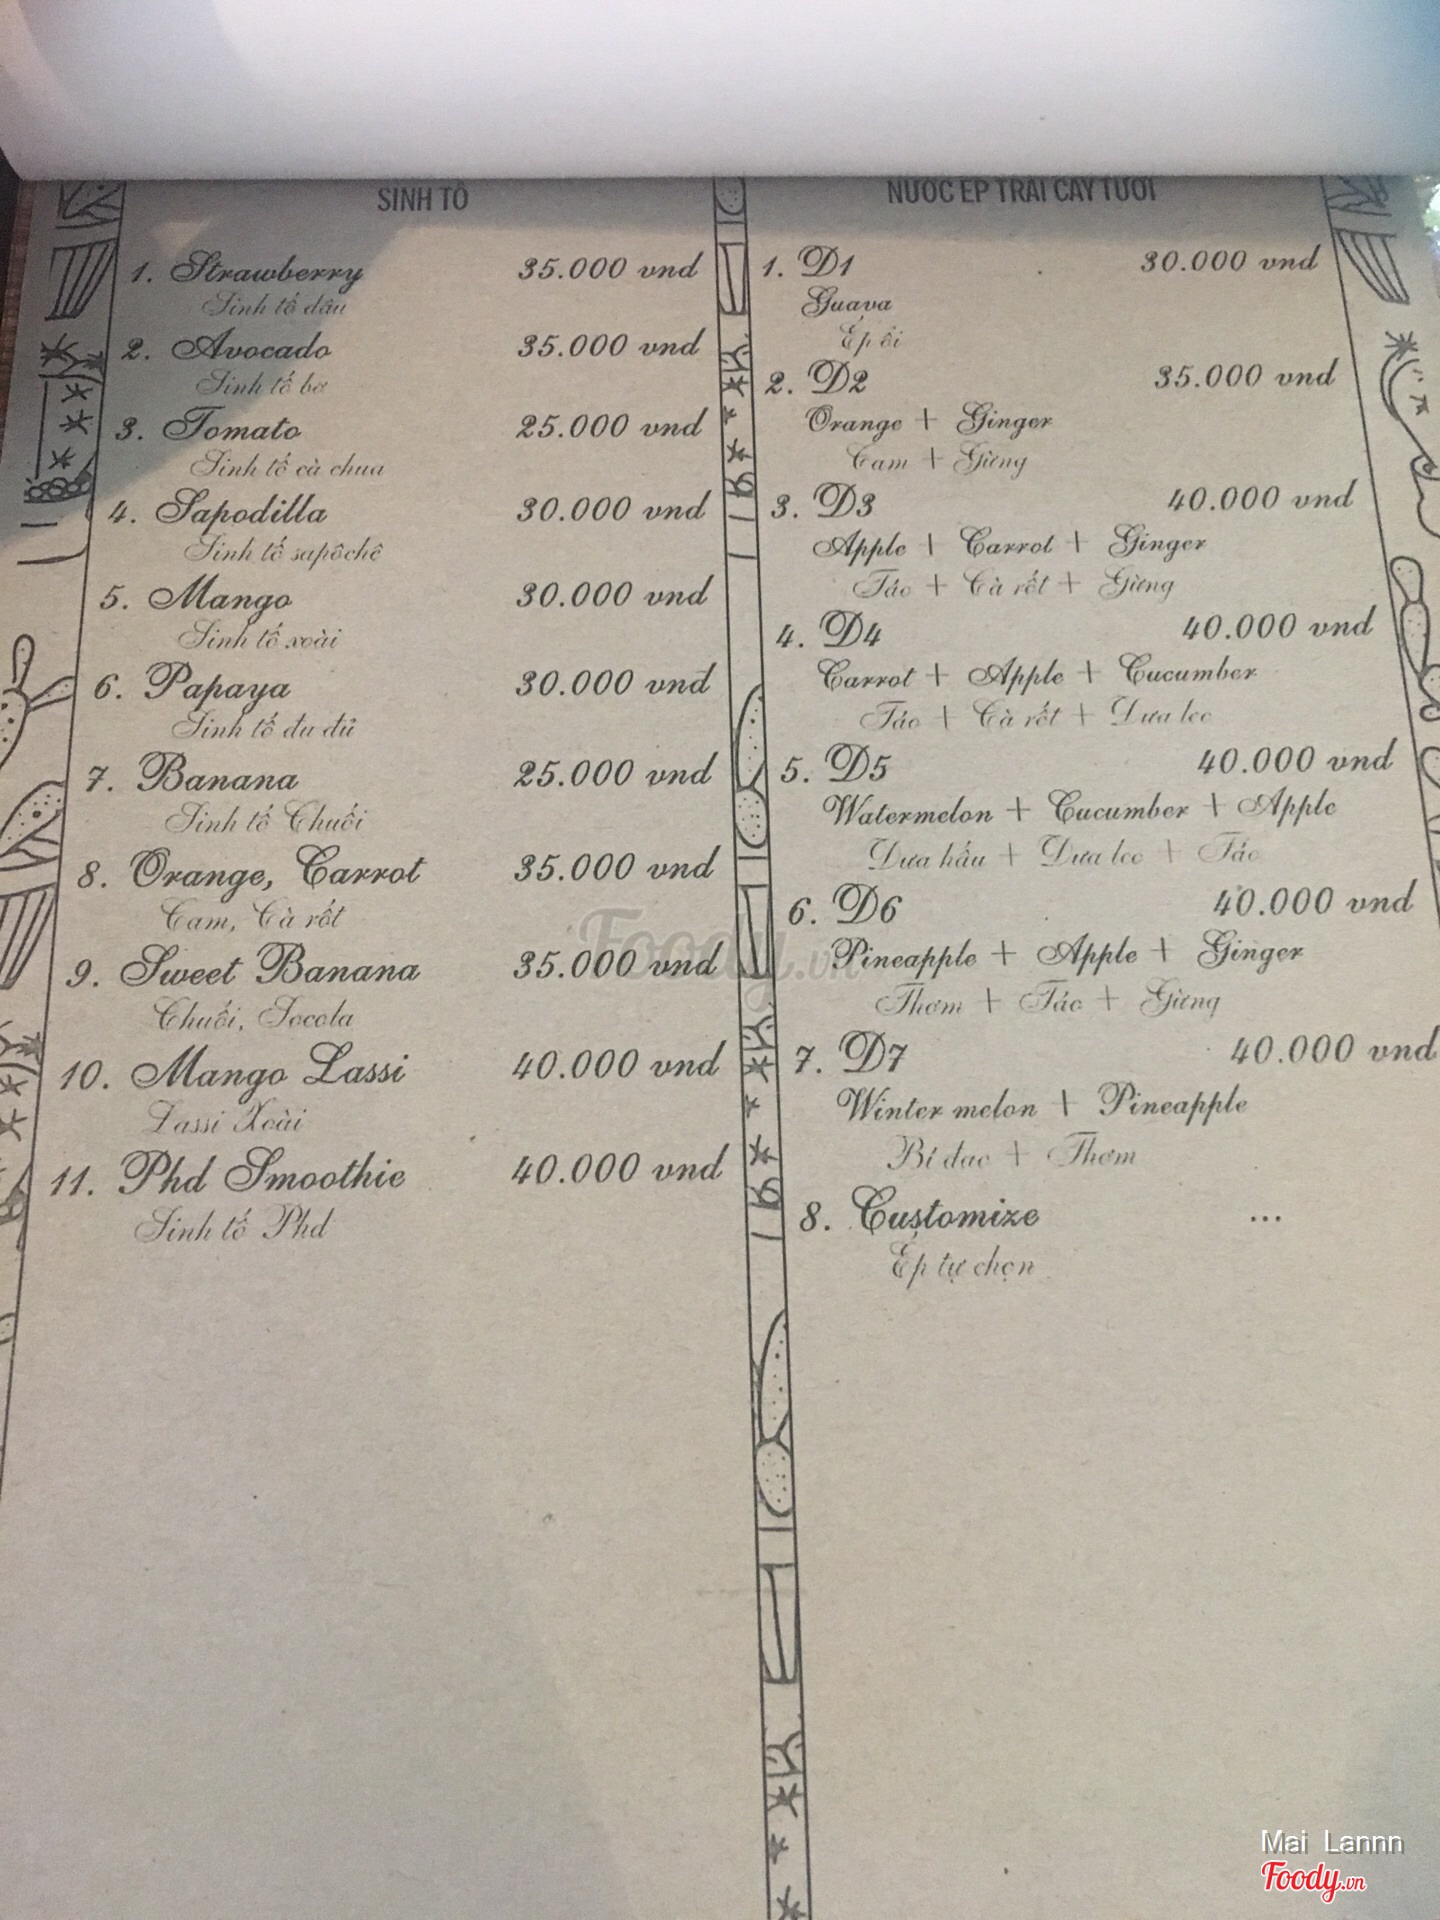 SINH TỐ
1. Strawberry 35.000 vnd
Sinh tố dâu
2. Avocado 35.000 vnd
Sinh tố bơ
3. Tomato 25.000 vnd
Sinh tố cà chua
4. Sapodilla 30.000 vnd
Sinh tố sapôchê
5. Mango 30.000 vnd
Sinh tố xoài
6. Papaya 30.000 vnd
Sinh tố đu đủ
7. Banana 25.000 vnd
Sinh tố Chuối
8. Orange, Carrot 35.000 vnd
Cam, Cà rốt
9. Sweet Banana 35.000 vnd
Chuối, Socola
10. Mango Lassi 40.000 vnd
Lassi Xoài
11. Phd Smoothie 40.000 vnd
Sinh tố Phd
NƯỚC ÉP TRÁI CÂY TƯƠI
1. D1 30.000 vnd
Guava
Ép ổi
2. D2 35.000 vnd
Orange + Ginger
Cam + Gừng
3. D3 40.000 vnd
Apple + Carrot + Ginger
Táo + Cà rốt + Gừng
4. D4 40.000 vnd
Carrot + Apple + Cucumber
Táo + Cà rốt + Dưa leo
5. D5 40.000 vnd
Watermelon + Cucumber + Apple
Dưa hấu + Dưa leo + Táo
6. D6 40.000 vnd
Pineapple + Apple + Ginger
Thơm + Táo + Gừng
7. D7 40.000 vnd
Winter melon + Pineapple
Bí đao + Thơm
8. Customize ...
Ép tự chọn
Foody.vn
Mai Lannn
Foody.vn